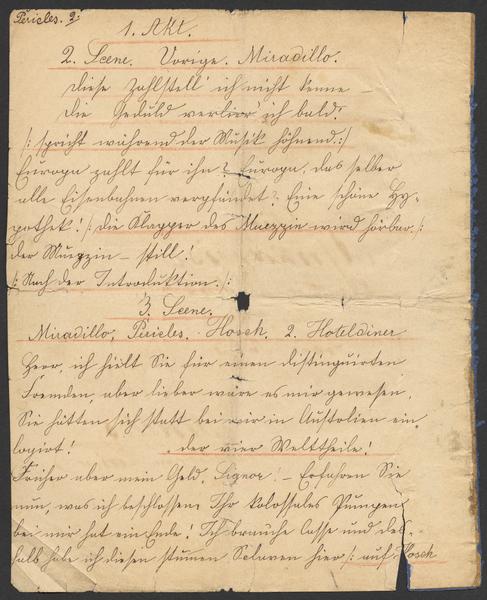 Pericles. 2.
1. Akt.
2. Scene. Vorige. Miradillo.
Diese Zahlstell' ich nicht kenne
Die Geduld verlier' ich bald.
/: spricht während der Musik höhnend. :/
Europa zahlt für ihn? Europa, das selber
alle Eisenbahnen verpfändet? Eine schöne Hy-
pothek! /: die Klapper des Muezzin wird hörbar. /:
der Muezzin – still!
/: Nach der Introduktion. /:
3. Scene.
Miradillo, Pericles. Hosch. 2. Hoteldiner
Herr, ich hielt Sie für einen distinguirten
Fremden, aber lieber wäre es mir gewesen,
Sie hätten sich statt bei mir in Australien ein
logirt! der vier Welttheile!
Früher aber mein Geld, Signor. – Erfahren Sie
nun, was ich beschlossen. Ihr kolossales Pumpen
bei mir hat ein Ende! Ich brauche Casse und des
halb habe ich diesen stummen Sclaven hier /: auf Hosch